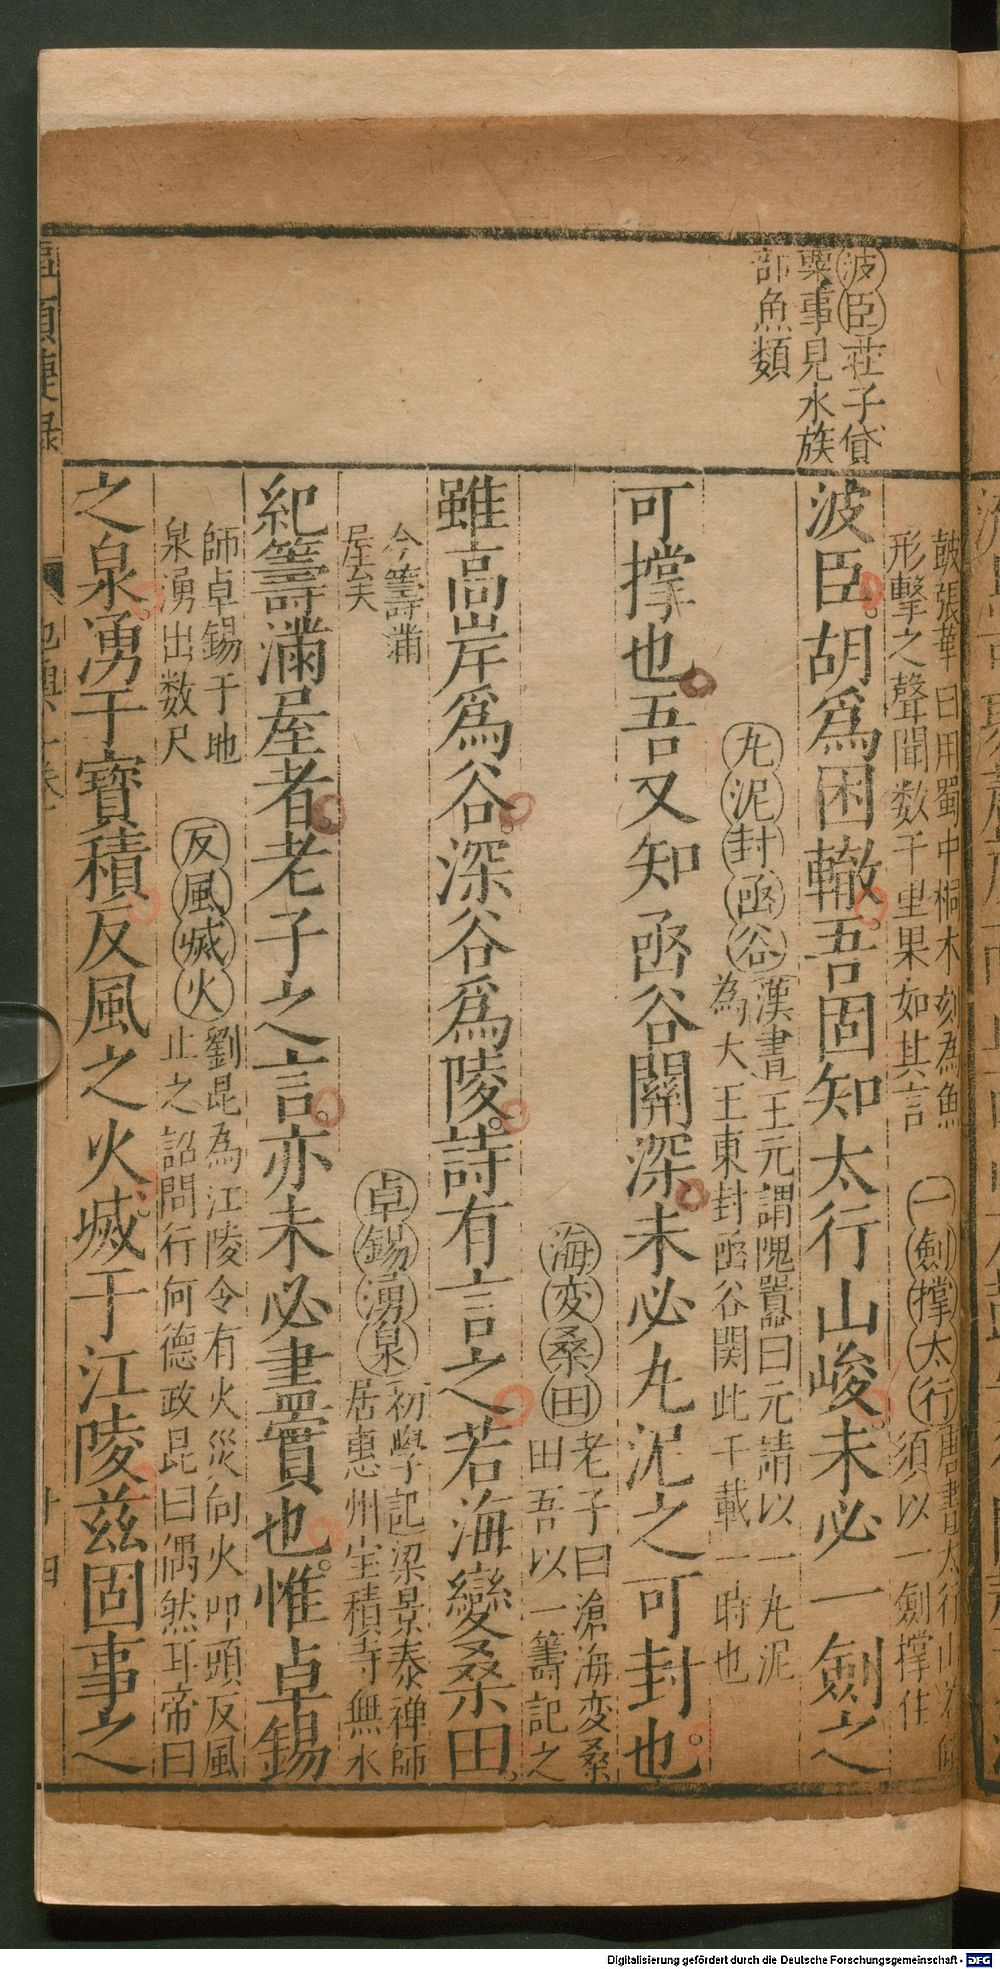 波臣莊子貸
粟事見水族
部魚類
皷張華曰用蜀中桐木刻為魚
形擊之聲聞数千里果如其言
一劍撑太行唐書太行山
須以一劍撑住
波臣胡爲困轍吾固知太行山峻未必一劍之
丸泥封凾谷漢書王元謂隗囂曰元請以一丸泥
為大王東封凾谷関此千載一時也
可撑也吾又知凾谷關深未必丸泥之可封也
海変桑田老子曰滄海変桑
田吾以一籌記之
雖高岸爲谷深谷爲陵詩有言之若海變桑田
今籌滿
屋矣
卓錫湧泉初學記梁景泰禅師
居惠州宝積寺無水
紀籌滿屋者老子之言亦未必盡實也惟卓錫
師卓錫于地
泉湧出数尺
反風滅火劉昆為江陵令有火災向火叩頭反風
止之詔問行何德政昆曰偶然耳帝曰
之泉湧于寶積反風之火滅于江陵茲固事之
十四
Digitalisierung gefördert durch die Deutsche Forschungsgemeinschaft - DFG